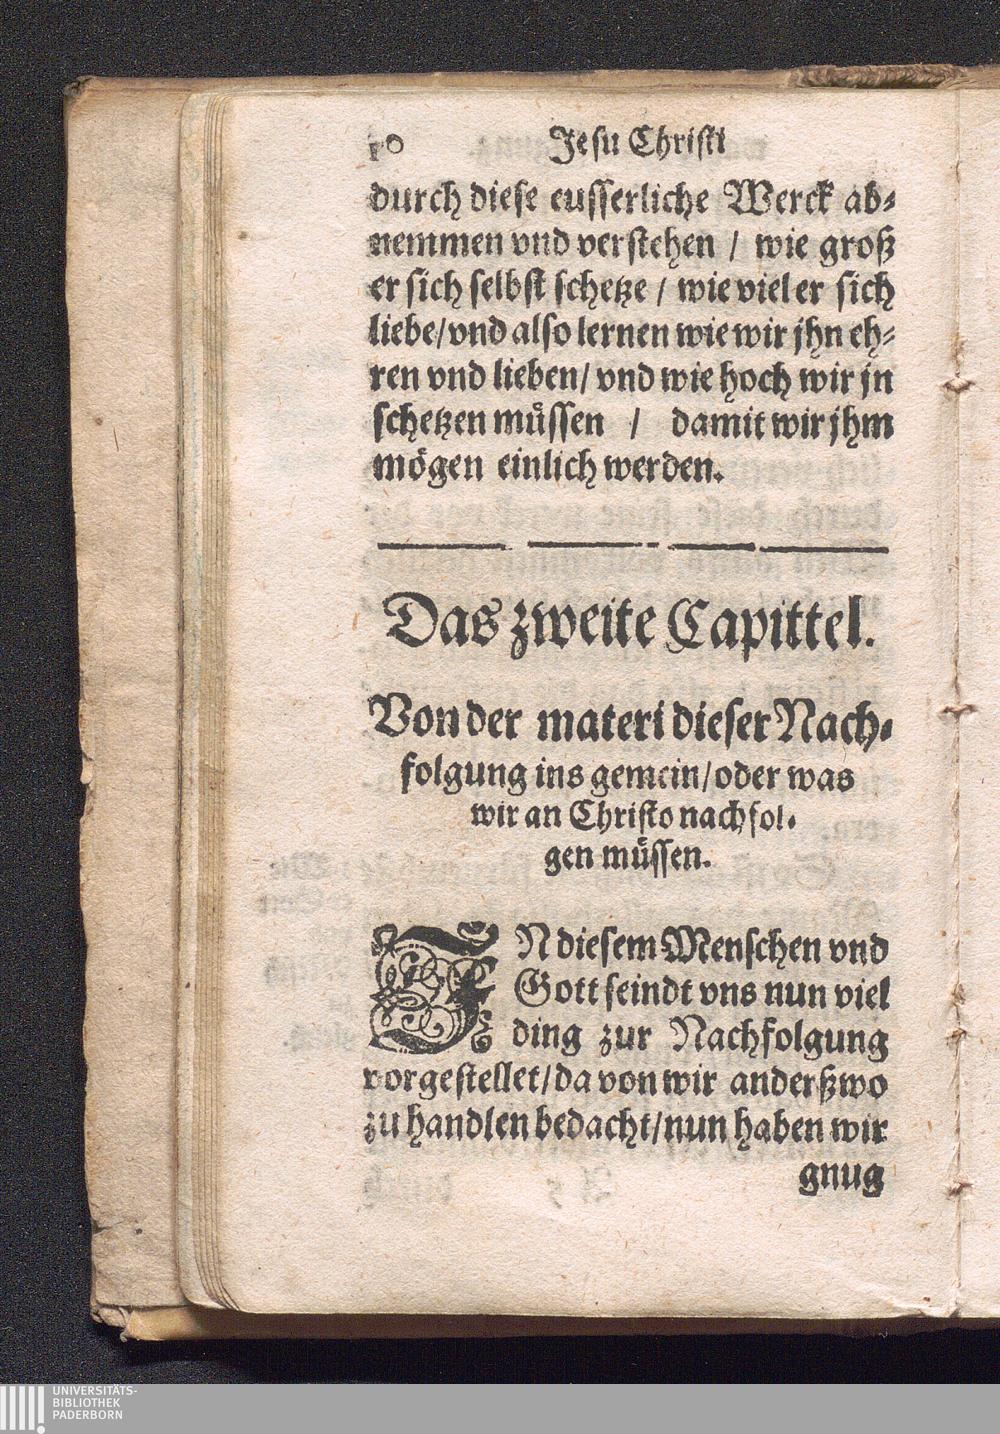 10 Jesu Christi
durch diese eusserliche Werck ab⸗
nemmen vnd verstehen / wie groß
er sich selbst schetze / wie viel er sich
liebe/vnd also lernen wie wir jhn eh⸗
ren vnd lieben/ vnd wie hoch wir jn
schetzen müssen / damit wir jhm
mögen einlich werden.
Das zweite Capittel.
Von der materi dieser Nach⸗
folgung ins gemein/oder was
wir an Christo nachfol⸗
gen müssen.
IN diesem Menschen vnd
Gott seindt vns nun viel
ding zur Nachfolgung
vorgestellet/da von wir anderßwo
zu handlen bedacht/nun haben wir
gnug
UNIVERSITÄTS-
BIBLIOTHEK
PADERBORN